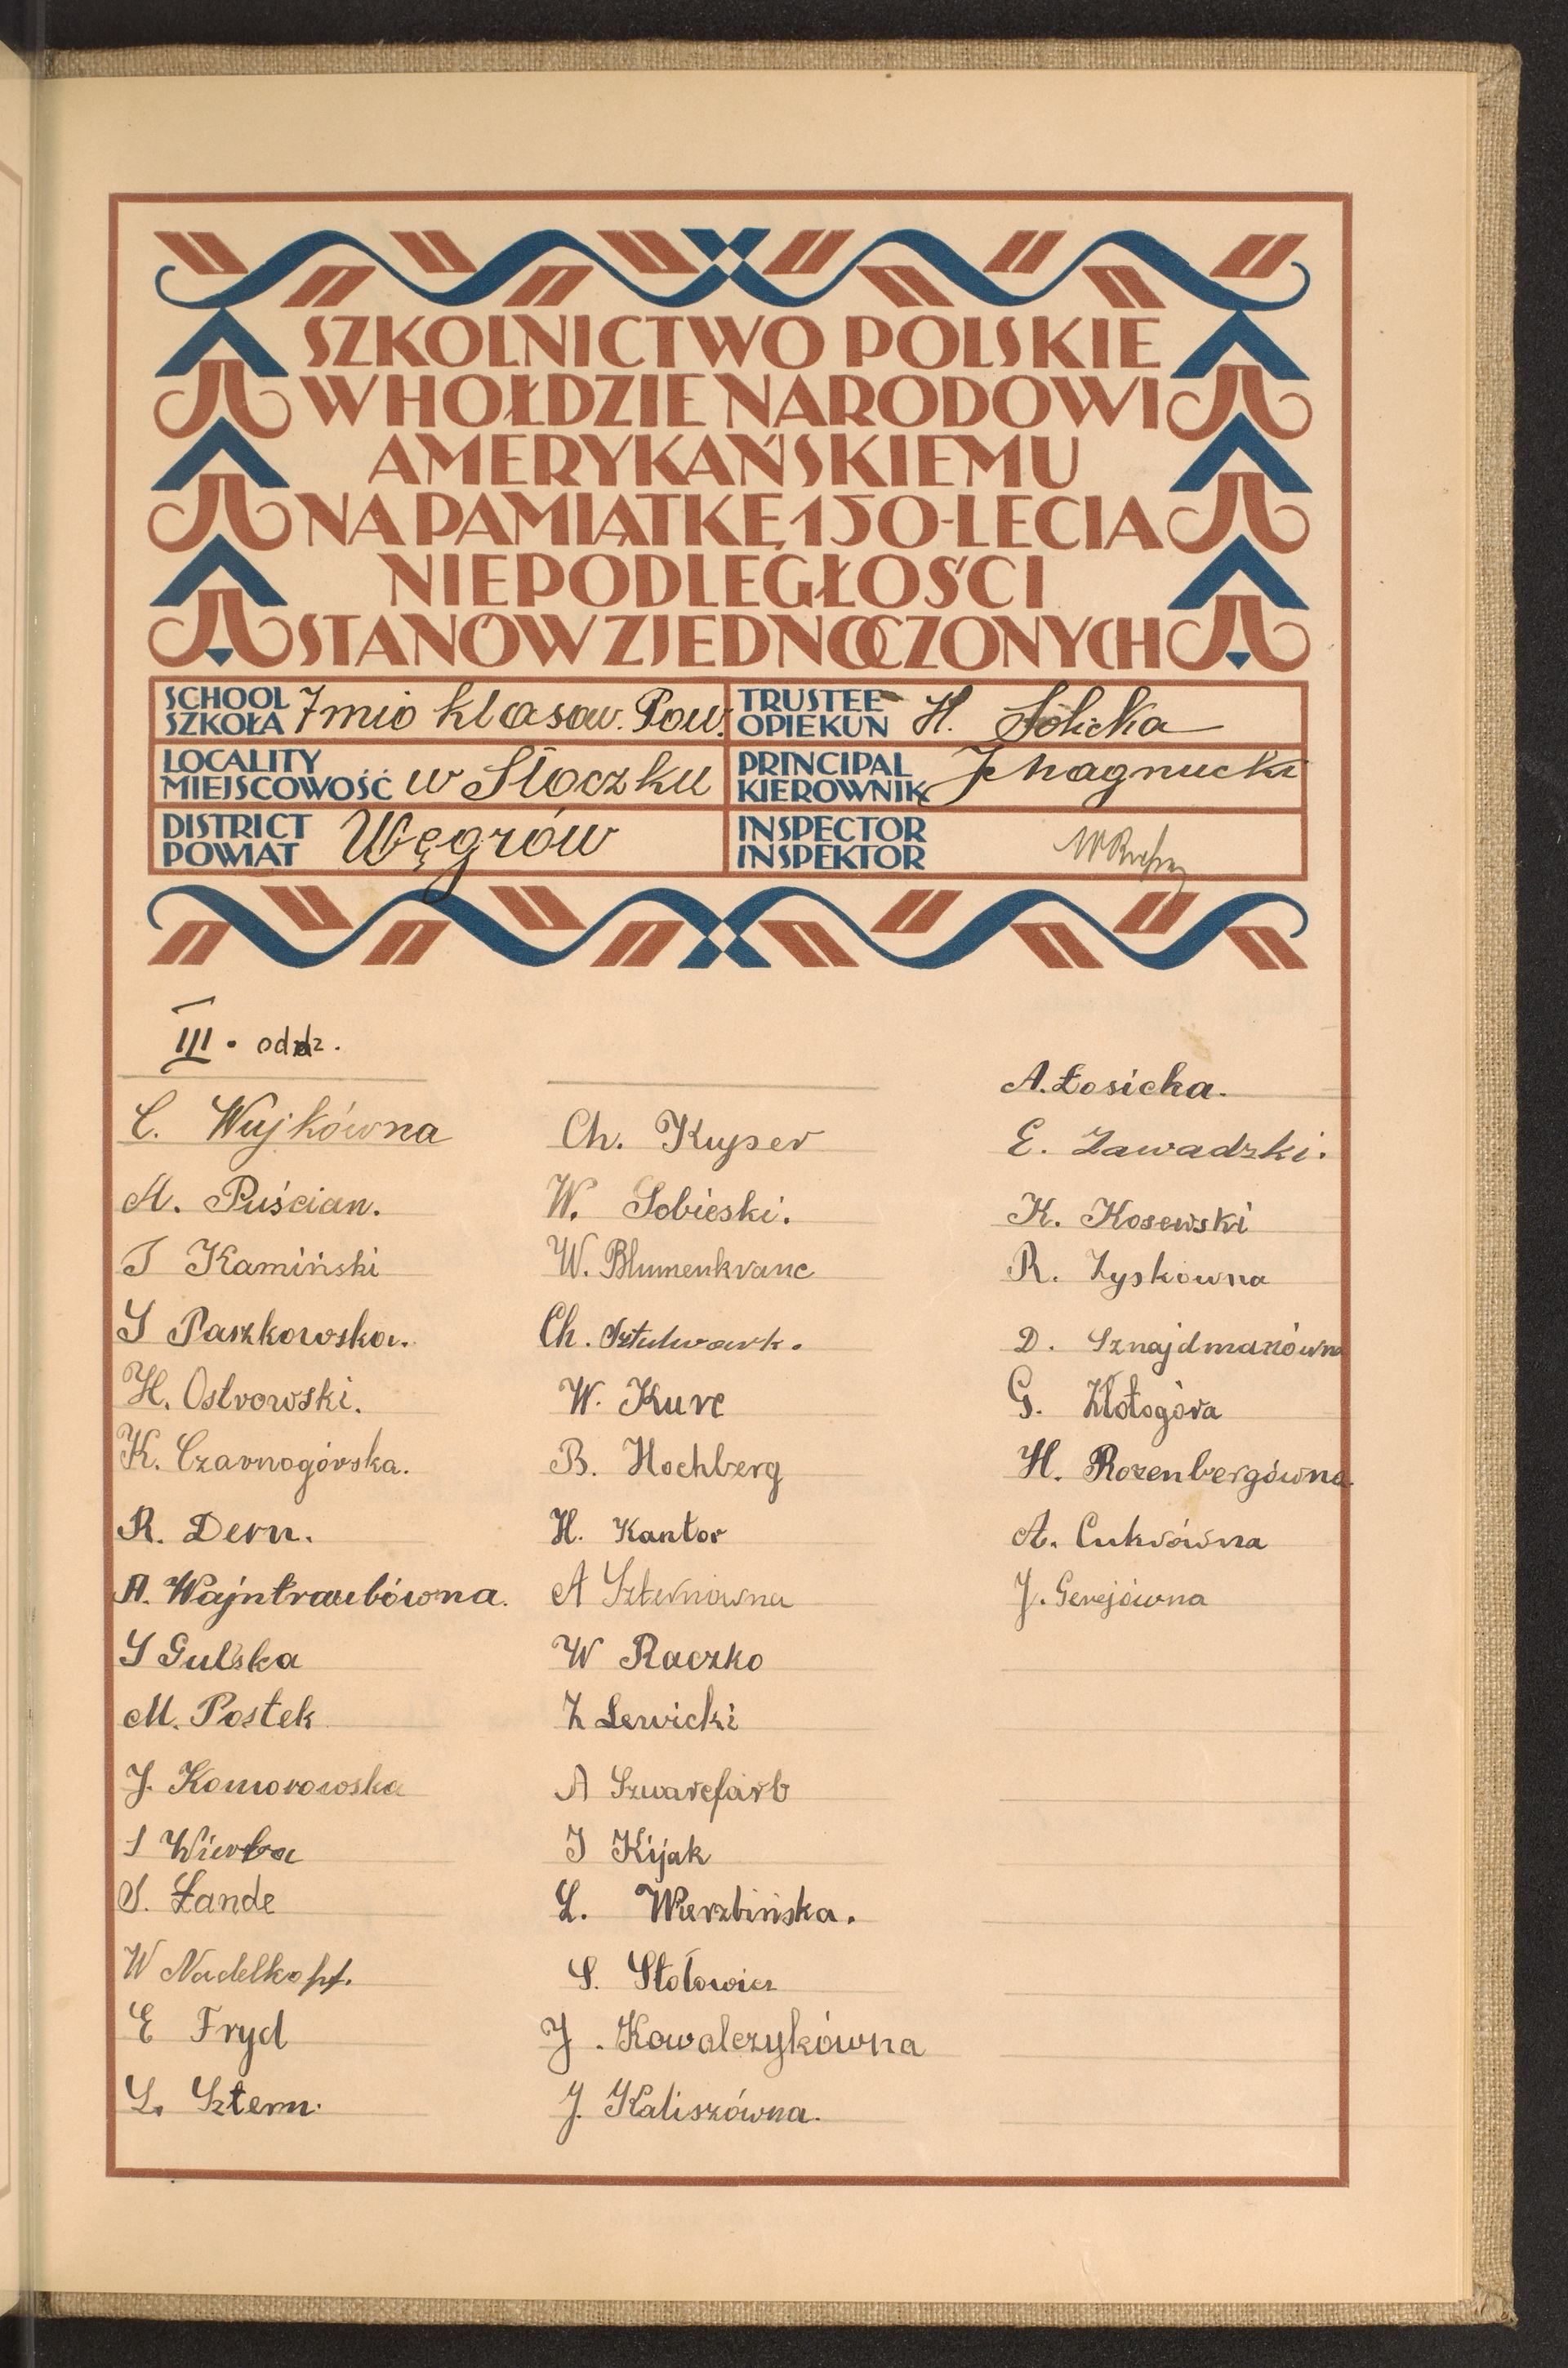 SZKOLNICTWO POLSKIE
W HOŁDZIE NARODOWI
AMERYKAŃSKIEMU
NA PAMIĄTKĘ 150-LECIA
NIEPODLEGŁOŚCI
STANÓW ZJEDNOCZONYCH
SCHOOL
SZKOŁA 7mio klasow. Pow.
TRUSTEE
OPIEKUN H. Solicka
LOCALITY
MIEJSCOWOŚĆ w Stoczku
PRINCIPAL
KIEROWNIK
DISTRICT
POWIAT Węgrów
INSPECTOR
INSPEKTOR
III. oddz.
C. Wujkówna
M. Puścian.
T Kamiński
S Paszkowska.
H. Ostrowski.
K. Czarnogórska.
R. Dern.
A. Wajntraubówna.
S Gulska
M. Postek
J. Komorowska
S Wierba
S. Łande
W Nadelkopf.
E Fryd
L. Sztern.
Ch. Kuyser
W. Sobieski.
W. Blumenkranc
Ch. Sztulwark.
W. Kurc
B. Hochberg
H. Kantor
A Szternówna
W Raczko
Z Lewicki
A Szwarcfarb
I Kijak
L. Wierzbińska.
S. Stołowicz
J. Kowalczykówna
J. Kaliszówna.
A. Łosicka.
E. Zawadzki.
K. Kosewski
R. Zyskówna
D. Sznajdmanówna
G. Złotogóra
H. Rozenbergówna
A. Cukrówna
J. Gerejówna